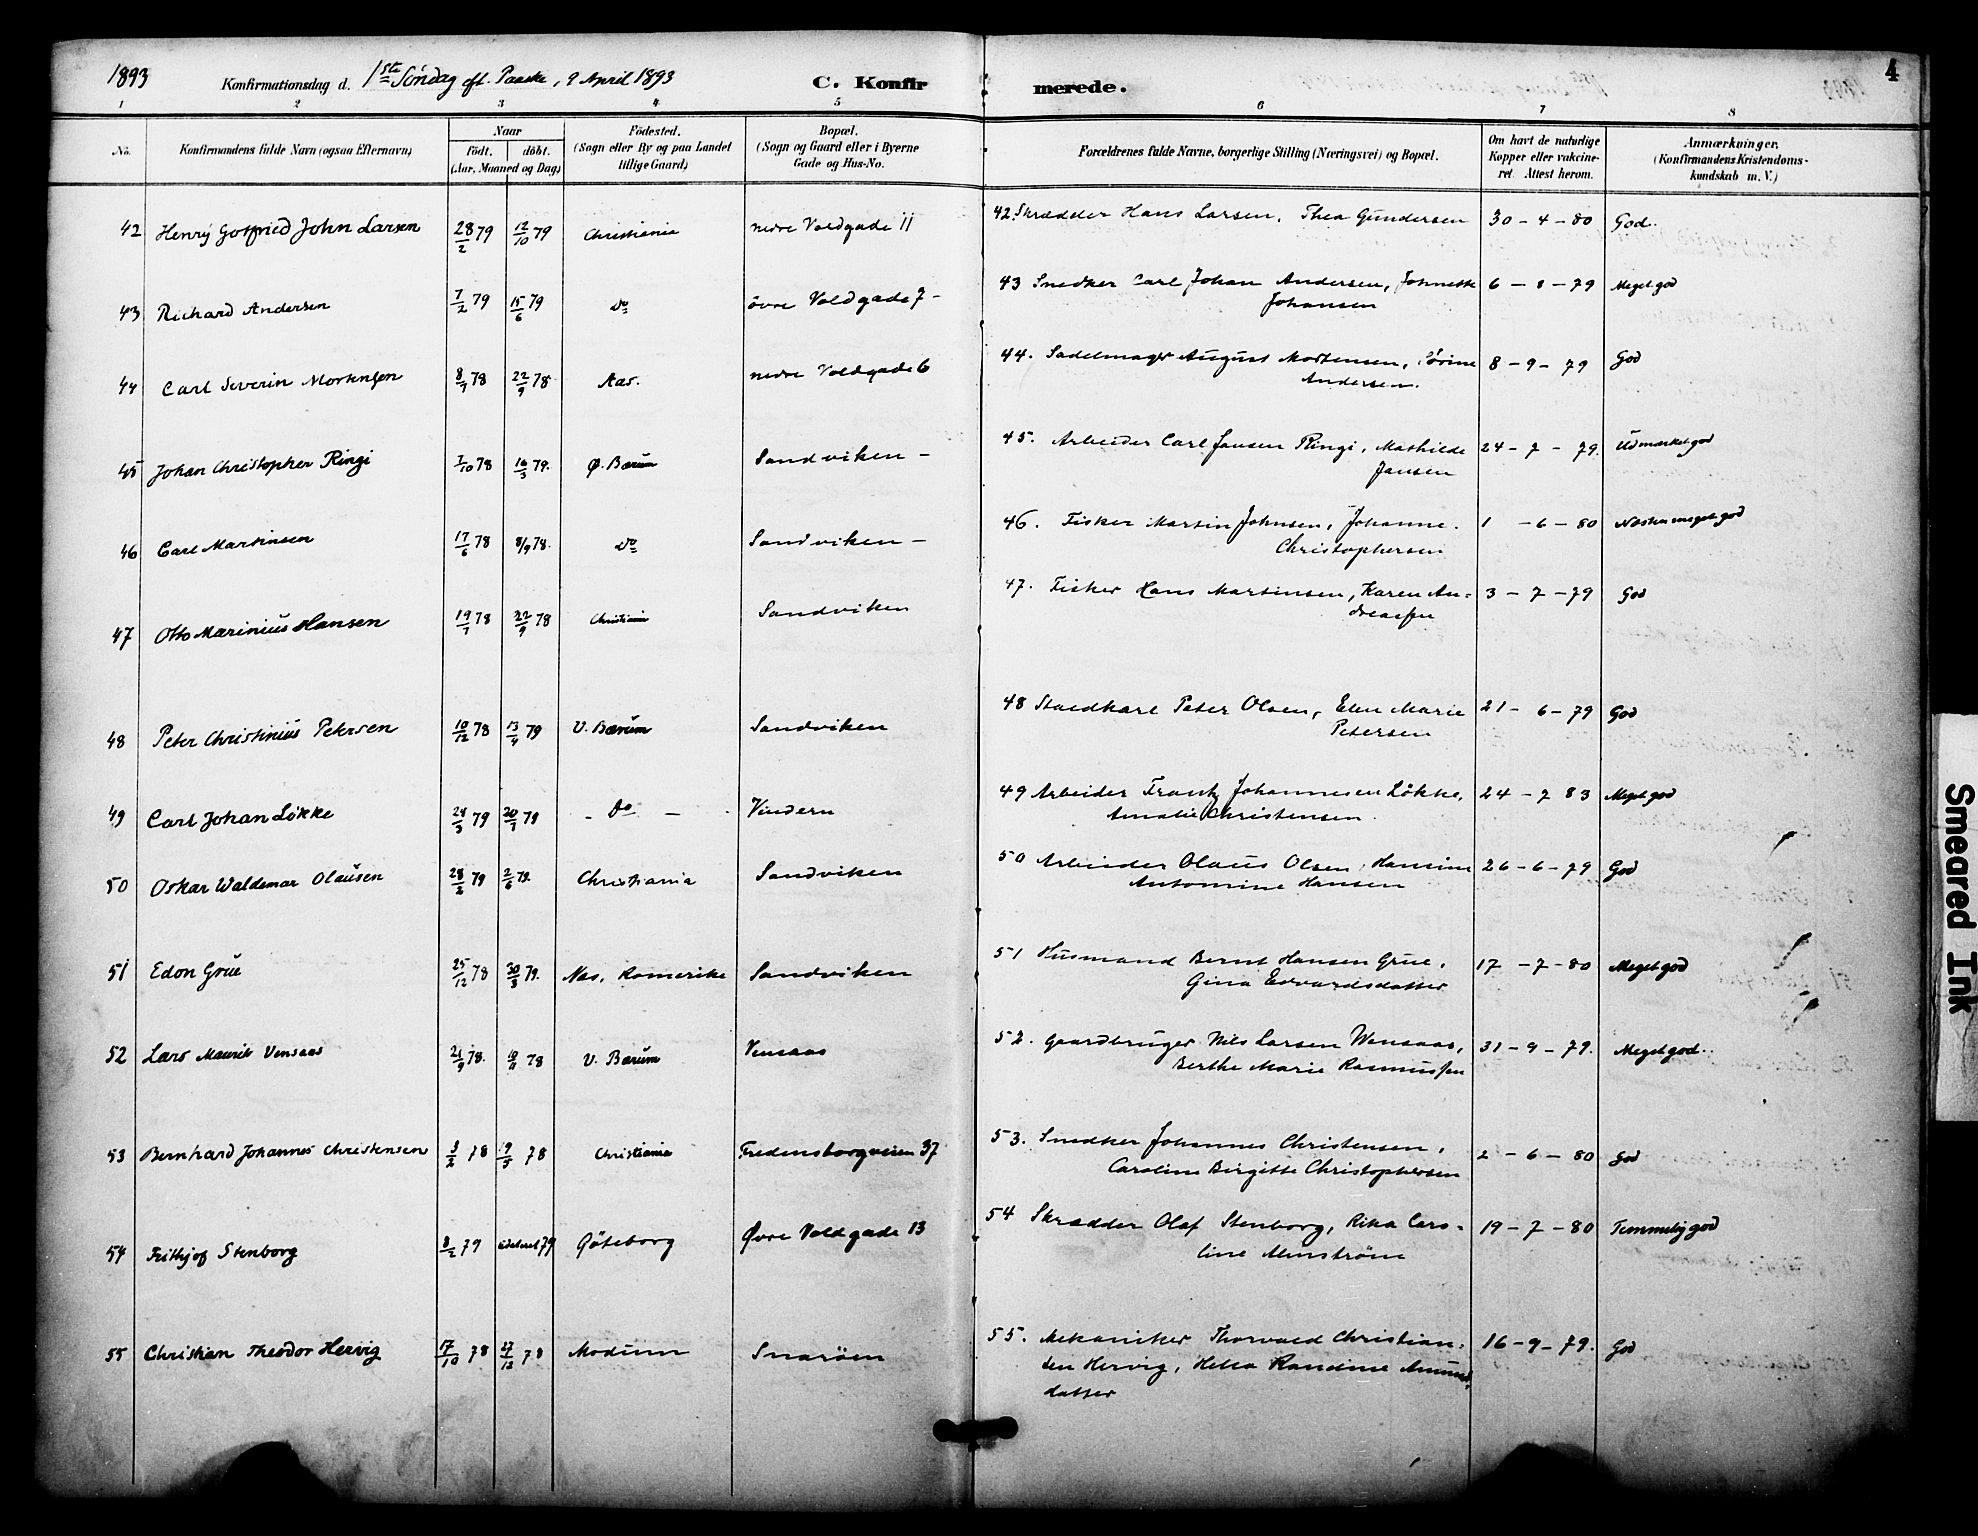 1893 Konfirmationsdag d. 1ste Söndag eft. Paaske, 9 April 1893 C. Konfir merede. 4
1 2 3 4 5 6 7 8
No. Konfirmandens fulde Navn (ogsaa Efternavn) Naar Födt. döbt. (Aar, Maaned og Dag) Födested. (Sogn eller By og paa Landet tillige Gaard) Bopæl. (Sogn og Gaard eller i Byerne Gade og Hus-No. Forældrenes fulde Navne, borgerlige Stilling (Næringsvei) og Bopæl. Om havt de naturlige Kopper eller vakcineret. Attest herom. Anmærkninger. (Konfirmandens Kristendomskundskab m. V.)
42 Henrÿ Gotfried John Larsen 28/2 79 12/10 79 Christiania nedre Voldgade 11 42. Skrædder Hans Larsen, Thea Gundersen 30 - 4 - 80 God.
43 Richard Andersen 7/2 79 15/6 79 Do övre Voldgade 7 - 43 Snedker Carl Johan Andersen, Johnette 6 - 8 - 79 Meget god
Johansen
44 Carl Severin Mortensen 8/7 78 22/9 78 Aas. nedre Voldgade 6 44. Sadelmager August Mortensen, Sörine 8 - 9 - 79 God
Andersen.
45 Johan Christopher Ringi 7/10 78 16/3 79. Ø. Bærum Sandviken - 45. Arbeider Carl Jansen Ringi, Mathilde 24 - 7 - 79. Udmærket god
Jansen
46 Carl Martinsen 17/6 78 8/9 78. Do Sandviken - 46. Fisker Martin Johnsen, Johanne. 1 - 6 - 80 Næsten meget god
Christophersen
47 Otto Marinius Hansen 19/7 78 22/9 78 Christiania Sandviken 47. Fisker Hans Martinsen, Karen An= 3 - 7 - 79 God
dreassen
48 Peter Christinius Petersen 10/12 78 13/4 79 V. Bærum Sandviken 48 Staldkarl Peter Olsen, Elen Marie 21 - 6 - 79 God
Petersen
49 Carl Johan Lökke 24/3 79 20/7 79 - Do - Vindern 49 Arbeider Frantz Johannesen Lökke, 24 - 7 83 Meget god
Amalie Christensen.
50 Oskar Waldemar Olausen 28/2 79 2/6 79. Christiania Sandviken 50 Arbeider Olaus Olsen, Hansine 26 - 6 - 79 God
Antomine Hansen
51 Edon Grue 25/12 78 30/3 79. Næs, Romerike Sandviken 51 Husmand Bernt Hansen Grue, 17 - 7 - 80 Meget god
Gina Edvardsdatter
52 Lars Maurits Vensaas 21/9 78. 10/11 78 V. Bærum Vensaas 52. Gaardbruger Nils Larsen Wensaas, 31 - 9 - 79. Meget god.
Berthe Marie Rasmussen
53 Bernhard Johannes Christensen 3/2 78 9/5 78 Christiania Fredensborgveien 37 53. Snedker Johannes Christensen, 2 - 6 - 80 God
Caroline Birgitte Christophersen
54 Frithjof Stenborg 8/2 79 79 Göteborg Øvre Voldgade 13 54 Skrædder Olaf Stenborg, Rika Caro= 19 - 7 - 80 Temmelig god
line Almström
55 Christian Theodor Hervig 17/10 78 27/12 78 Modum Snaröen 55. Mekaniker Thorvald Christian= 16 - 9 - 79. God
sen Hervig, Helta Randine Amunds
datter
Smeared Ink